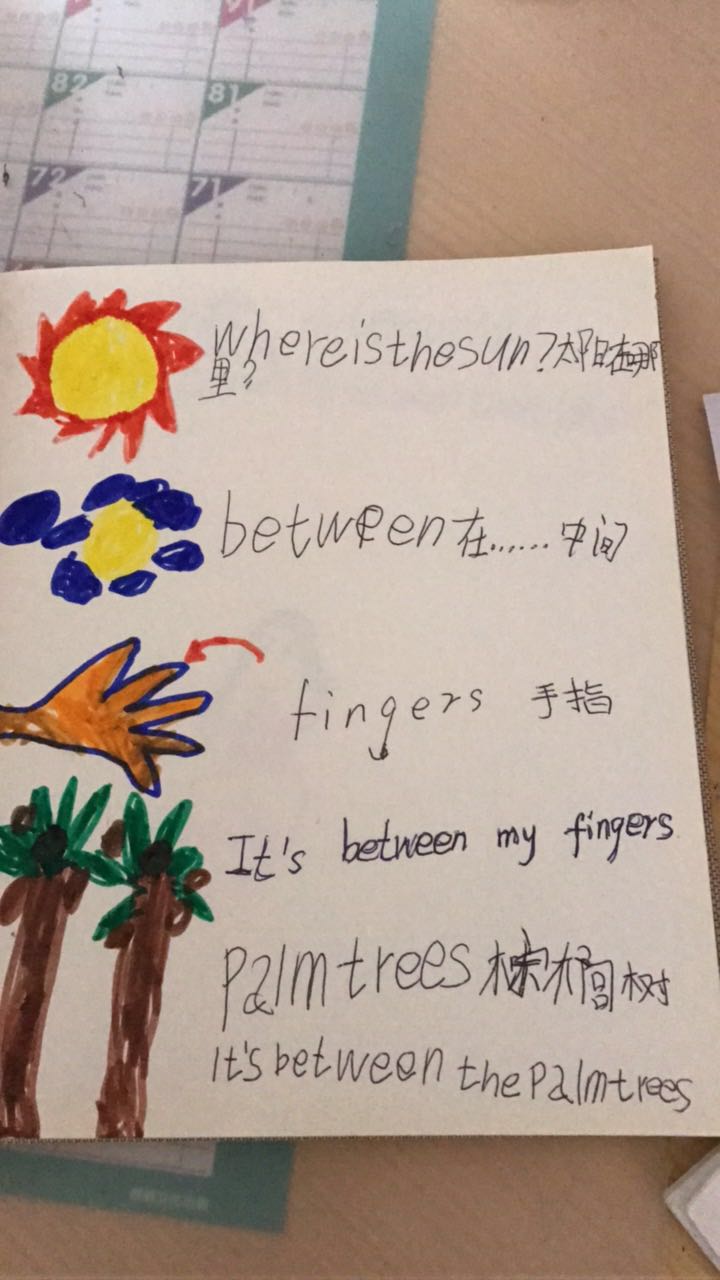 82
81
72
71
where is the sun? 太阳在哪
里?
between 在…… 中间
fingers 手指
It's between my fingers
palm trees 棕榈树
It's between the palm trees